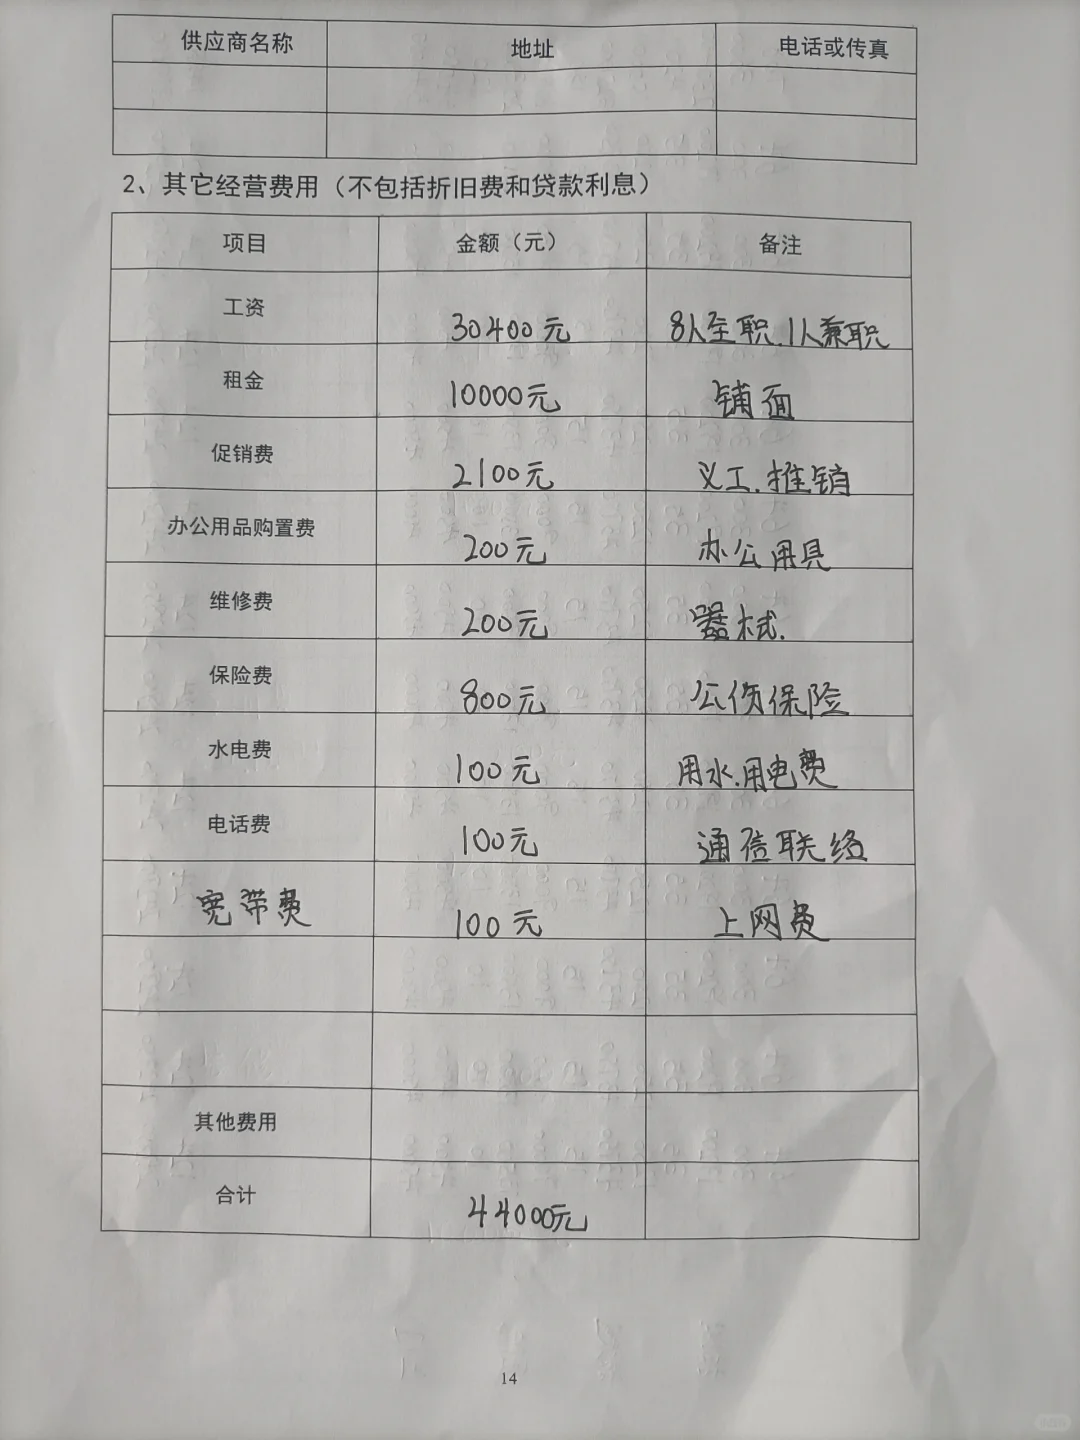 供应商名称 地址 电话或传真
2、其它经营费用（不包括折旧费和贷款利息）
项目 金额（元） 备注
工资 30400元 8人全职.1人兼职
租金 10000元 铺面
促销费 2100元 义工.推销
办公用品购置费 200元 办公用具
维修费 200元 器械.
保险费 800元 公伤保险
水电费 100元 用水.用电费
电话费 100元 通信联络
宽带费 100元 上网费
其他费用
合计 44000元
14